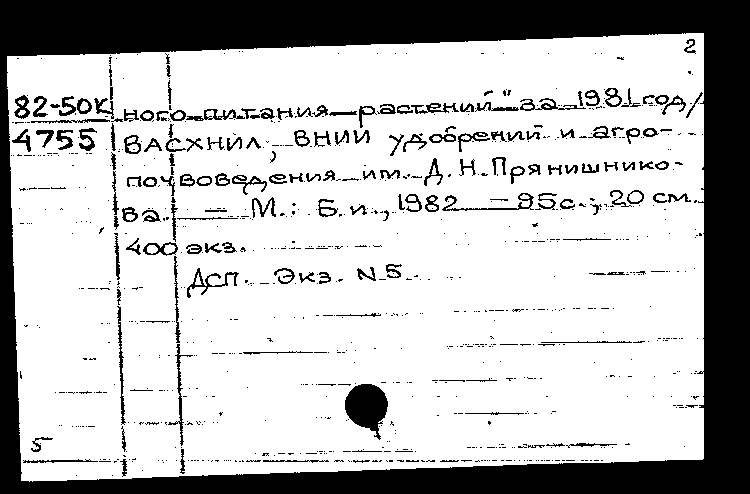 2
82-50К ного питания растений" за 1981 год /
4755 ВАСХНИЛ, ВНИИ удобрений и агро-
почвоведения им. Д.Н.Прянишнико-
ва. – М.: Б.и., 1982 – 95с.; 20 см.
400 экз.
ДСП. Экз. N5
5